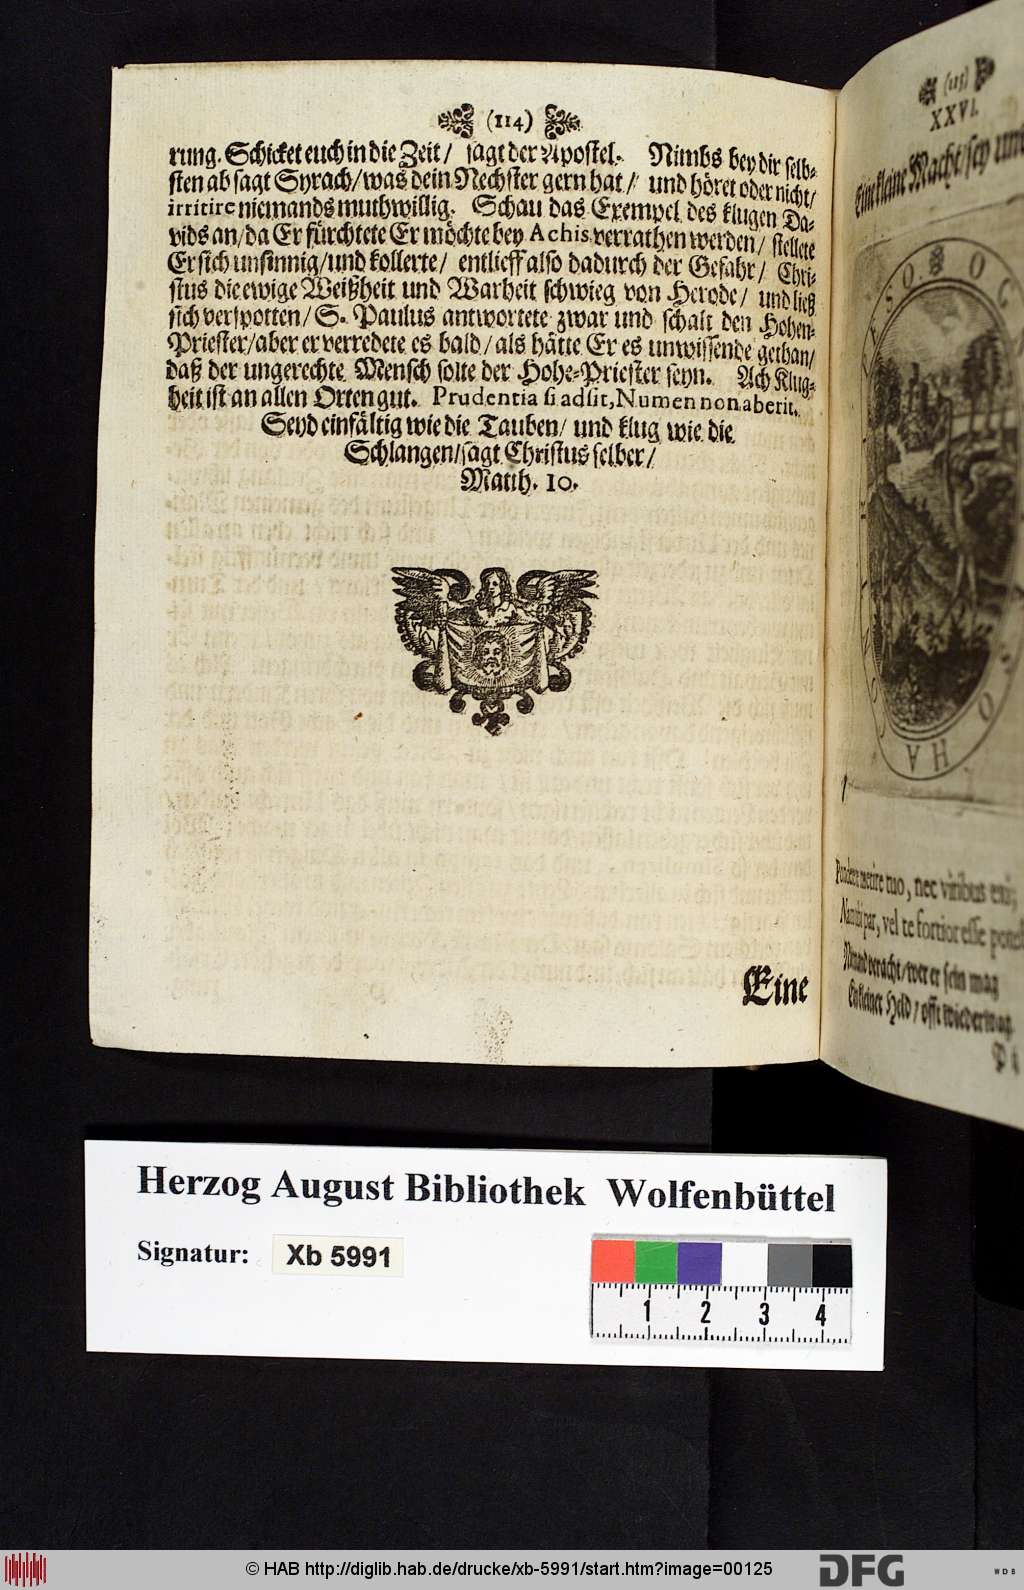 (114)
rung. Schicket euch in die Zeit/ sagt der Apostel. Nimbs bey dir selb-
sten ab sagt Syrach/ was dein Nechster gern hat/ und höret oder nicht/
irritire niemands muthwillig. Schau das Exempel des klugen Da-
vids an/ da Er fürchtete Er möchte bey Achis verrathen werden/ stellete
Er sich unsinnig/ und kollerte/ entlieff also dadurch der Gefahr/ Chri-
stus die ewige Weißheit und Warheit schwieg von Herode/ und ließ
sich verspotten/ S. Paulus antwortete zwar und schalt den Hohen-
Priester/ aber er verredete es bald/ als hätte Er es unwissende gethan/
daß der ungerechte Mensch solte der Hohe-Priester seyn. Ach Klug-
heit ist an allen Orten gut. Prudentia si adsit, Numen non aberit.
Seyd einfältig wie die Tauben/ und klug wie die
Schlangen/ sagt Christus selber/
Matth. 10.
Eine
(115)
XXVI.
Eine kleine Macht/ sey
HA
tuo, nec viribus
par, vel te fortior esse
Niemand veracht/ wer er sein mag
Ein kleiner Held/ offt
Herzog August Bibliothek Wolfenbüttel
Signatur: Xb 5991
1 2 3 4
© HAB http://diglib.hab.de/drucke/xb-5991/start.htm?image=00125
DFG
WDB